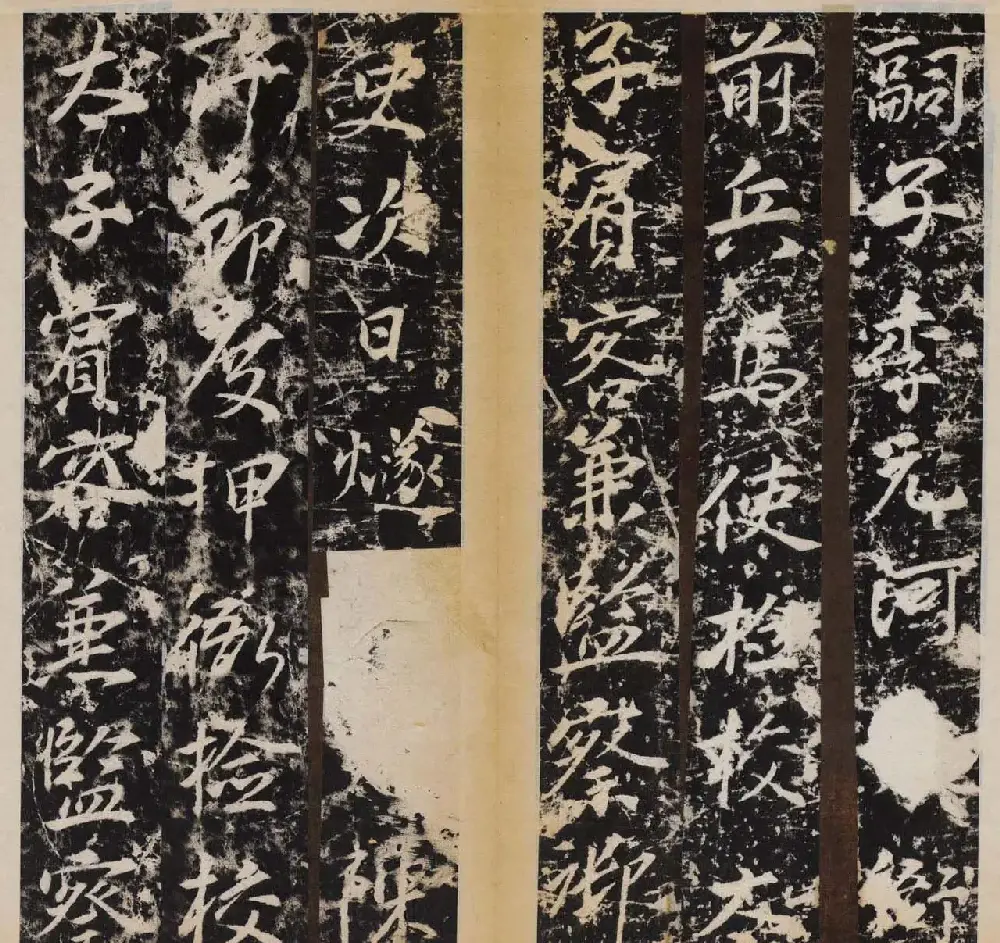 嗣子季元河衙
前兵馬使檢校太
子賓客兼監察御
史次曰燧陳
許節度押衙檢校
太子賓客兼監察